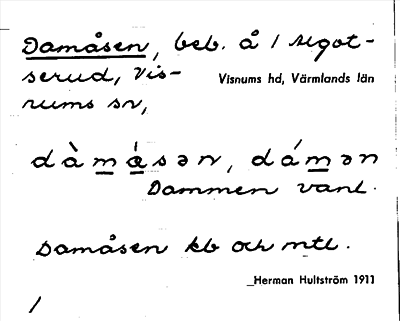 Damåsen, beb. å 1 Algot-
serud, Vis-
Visnums hd, Värmlands län
nums sn,
dàmåsən, dámən
Dammen vanl.
Damåsen kb och mtl.
Herman Hultström 1911
/